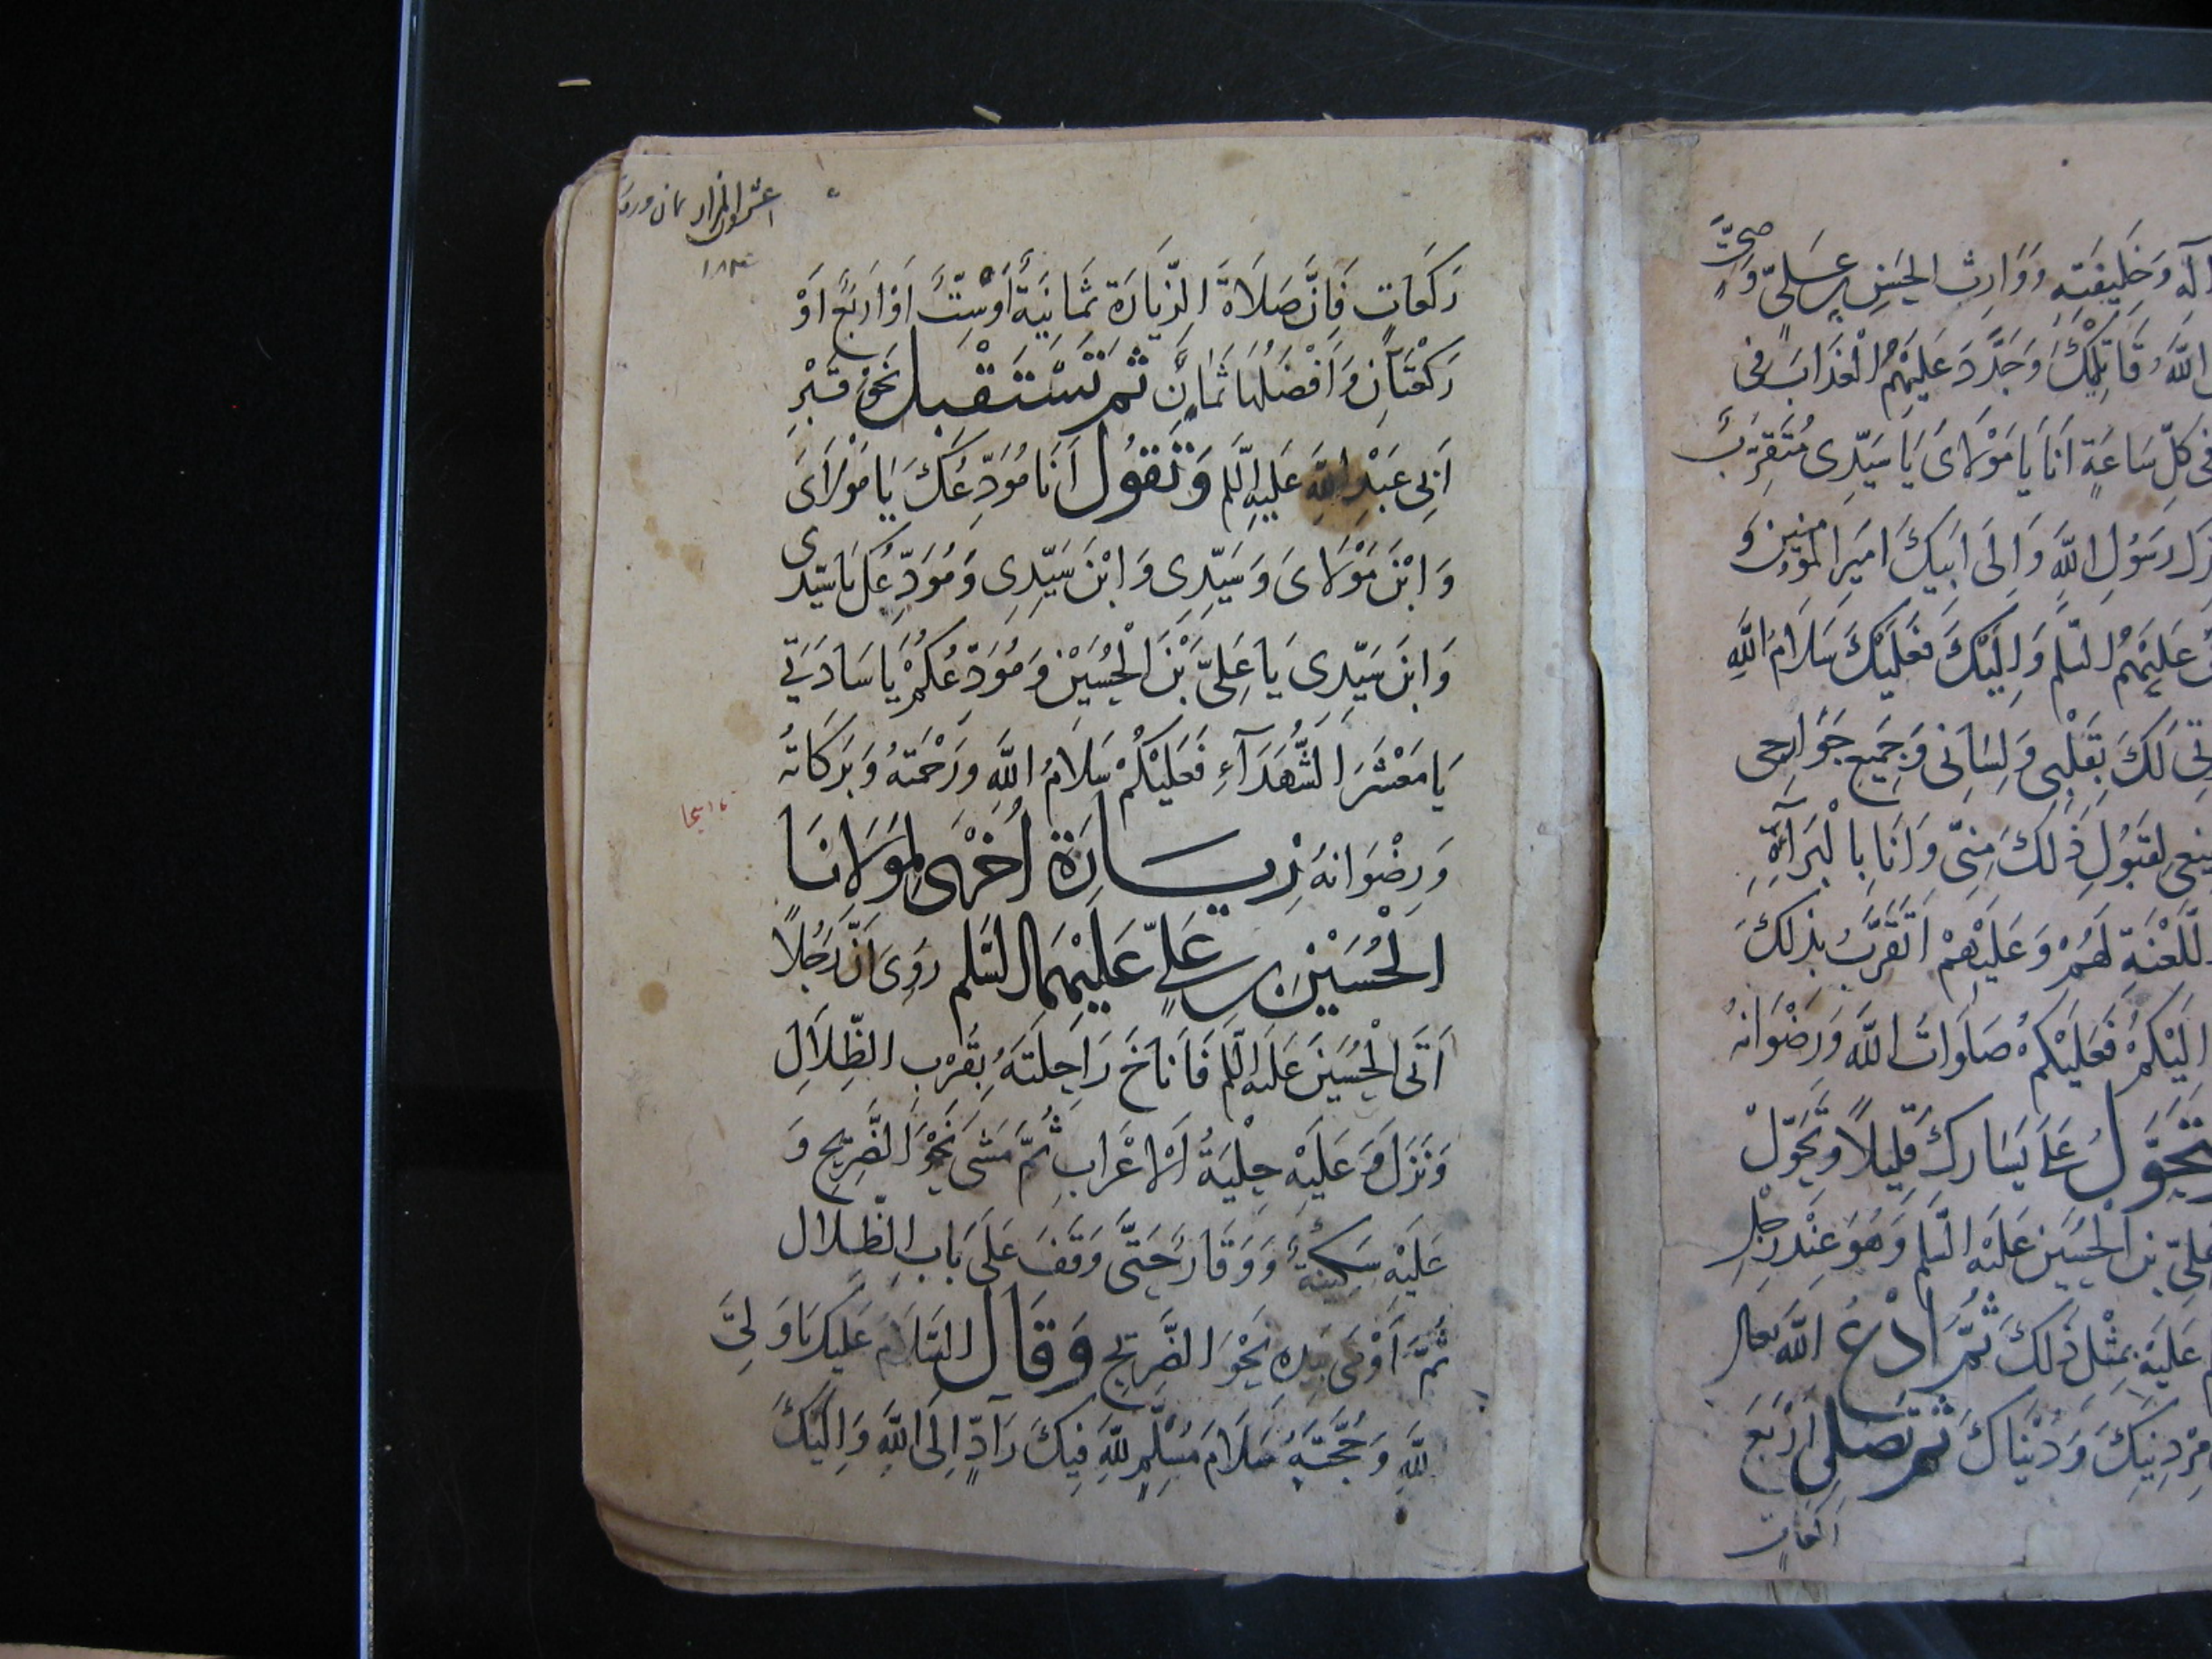 الِهِ وَخَلِيفَتِهِ وَوَارِثِ الحَسَنِ بنِ عَلِىّ وَ صَحِبَتْ
اللَّهُ قَاتِلِيكَ وَجَدَّدَ عَلَيْهِمُ الْعَذَابَ فى
فى كُلِّ سَاعَةٍ اَنَا يَا مَوْلَاىَ يَا سَيِّدِى مُتَقَرِّبٌ
رَسُولِ اللَّهِ وَاِلَى اَبِيكَ اَمِيرِ المؤمنِينَ وَ
عَلَيْهِمُ السَّلَم وَاِلَيْكَ فَعَلَيْكَ سَلَامُ اللَّهِ
لَكَ بِقَلْبِى وَلِسَانِى وَجَمِيعِ جَوَارِحِى
لِقَبُولِ ذَلِكَ مِنِّى وَاَنَا بِالْبَرَآءَةِ
اللَّعْنَةِ لَهُمْ وَعَلَيْهِمْ اَتَقَرَّبُ بِذَلِكَ
اِلَيْكُمْ فَعَلَيْكُمْ صَلَوَاتُ اللَّهِ وَرِضْوَانهُ
تَحَوَّلْ عَلَى يَسَارِكَ قَلِيلاً وَتَحَوَّلْ
عَلِىّ بن الْحُسَيْنِ عَلَيْهِ السَّلَم وَهُوَ عِنْدَ رِجْلِ
عَلَيْهِ بِمِثْلِ ذَلِكَ ثُمَّ ادْعُ اللَّهَ بِما
دِينِكَ وَدُنْيَاكَ ثُمَّ تُصَلِّى اَرْبَعَ
رَكَعَاتٍ
رَكَعَاتٍ فَاِنَّ صَلَاةَ الزِّيَارَة ثَمَانِيَةٌ اَوْ سِتَّةٌ اَوْ اَرْبَعٌ اَوْ
رَكْعَتَانِ وَاَفْضَلُهَا ثَمَانٌ ثُمَّ تَسْتَقْبِل نَحْوَ قَبْرِ
اَبِى عَبْدِ اللهِ عَلَيهِ السَّلم وَتَقُول اَنَا مُوَدِّعُكَ يَا مَوْلَاىَ
وَابْنَ مَوْلَاىَ وَسَيِّدِى وَابْنَ سَيِّدِى وَمُوَدِّعُكَ يَا سَيِّدى
وَابنَ سَيِّدِى يَا عَلِىَّ بْنَ الْحُسَيْنِ وَمُوَدِّعُكُمْ يَا سَادَتِي
يَا مَعْشَرَ الشُّهَدَآءِ فَعَلَيْكُمْ سَلَامُ اللَّهِ وَرَحْمَتهُ وَبَرَكَاتهُ
وَرِضْوَانهُ زِيَارَةٌ اُخْرَى لِمَوْلَانَا
الْحُسَيْنِ بن عَلِىّ عَلَيْهِمَا السَّلم رُوِىَ اَنَّ رَجُلاً
اَتَى الْحُسَيْنَ عَلَيهِ السَّلم فَاَنَاخَ رَاحِلَتَهُ بِقُرْبِ الظِّلَالِ
وَنَزَلَ وَعَلَيْهِ حِلْيَةُ الْاَعْرَابِ ثُمَّ مَشَى نَحْوَ الضَّرِيحِ وَ
عَلَيْهِ سَكِينَةٌ وَوَقَار حَتَّى وَقَفَ عَلَى بَابِ الظِّلَال
ثُمَّ اَوْمَى بِيَدِهِ نَحْوَ الضَّرِيحِ وَقَال السَّلَامُ عَلَيْكَ يَا وَلِىَّ
للَّهِ وَحُجَّتَهُ سَلَامَ مُسَلِّمٍ للَّهِ فِيكَ رَادٍّ اِلَى اللَّهِ وَاِلَيْكَ